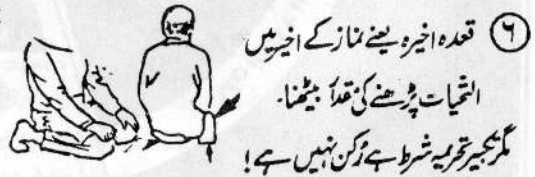 ۶ قعدہ اخیرہ یعنے نماز کے اخیر میں
التحیات پڑھنے کی قدر بیٹھنا۔
مگر تکبیر تحریمہ شرط ہے رُکن نہیں ہے!